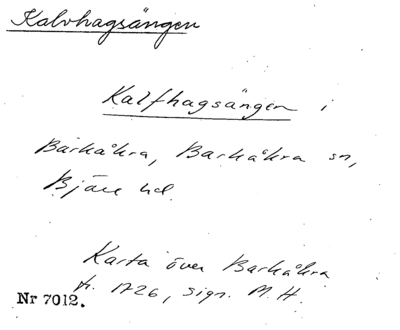 Kalvhagsängen
Kalfhagsängen i
Barkåkra, Barkåkra sn,
Bjäre hd.
Karta över Barkåkra
fr. 1726, sign. M. H.
Nr 7012.